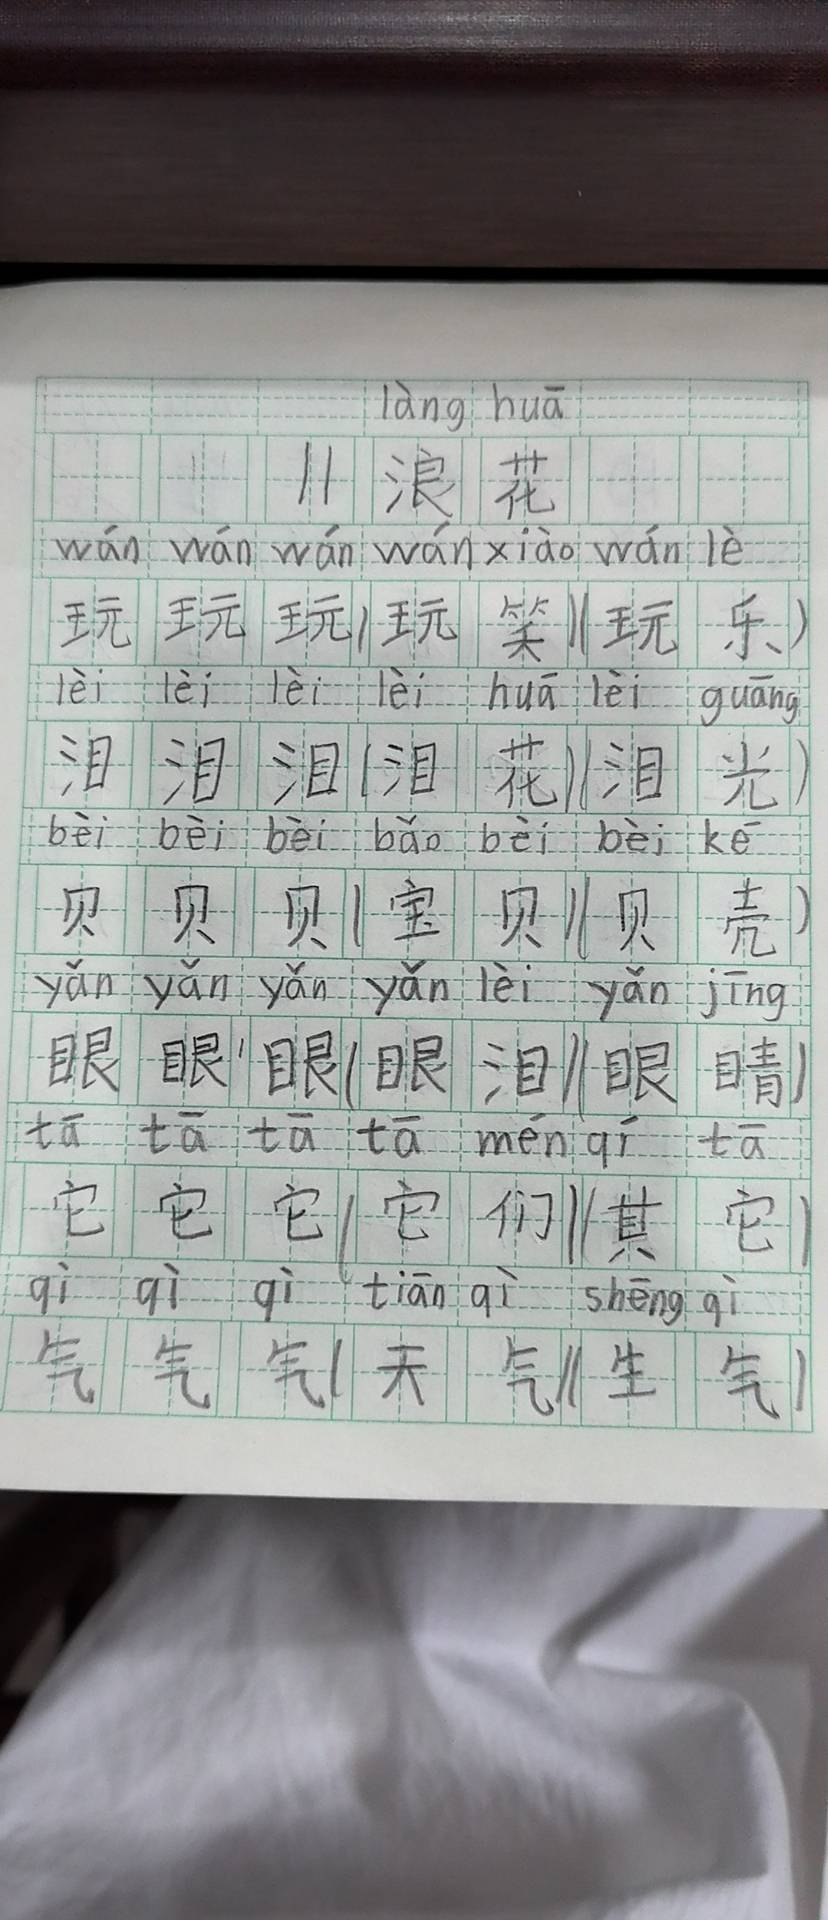 làng huā
11 浪 花
wán wán wán wán xiào wán lè
玩 玩 玩(玩 笑)(玩 乐)
lèi lèi lèi lèi huā lèi guāng
泪 泪 泪(泪 花)(泪 光)
bèi bèi bèi bǎo bèi bèi ké
贝 贝 贝(宝 贝)(贝 壳)
yǎn yǎn yǎn yǎn lèi yǎn jīng
眼 眼 眼(眼 泪)(眼 睛)
tā tā tā tā mén qí tā
它 它 它(它 们)(其 它)
qì qì qì tiān qì shēng qì
气 气 气(天 气)(生 气)